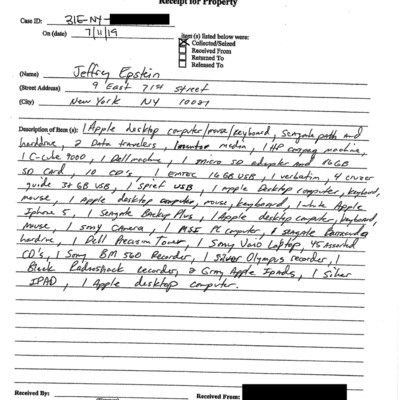 Receipt for Property
Case ID: 31E-NY-
On (date) 7/11/19
item (s) listed below were:
Collected/Seized
Received From
Returned To
Released To
(Name) Jeffrey Epstein
(Street Address) 9 East 71st Street
(City) New York NY 10021
Description of Item (s): 1 Apple desktop computer/mouse/keyboard, Seagate and
harddrive, 2 Data travelers, media, 1 HP compaq machine,
1 C-cube 9000, 1 Dell machine, 1 micro SD adapter and 16GB
SD Card, 10 CD's, 1 EMTEC 16GB USB, 1 verbatim, 4 cruzer
guide GB USB, 1 USB, 1 Apple Desktop computer, keyboard,
mouse, 1 apple desktop computer, mouse, keyboard, 1 white Apple
Iphone 5, 1 Seagate Backup Plus, 1 Apple desktop computer, keyboard,
mouse, 1 Sony Camera, 1 MSI PC computer, Seagate Barracuda
hardrive, 1 Dell Precision Tower, 1 Sony Vaio Laptop, 45 assorted
CD's, 1 Sony BM 560 Recorder, 1 Silver Olympus recorder, 1
Black Radioshack recorder, 2 Gray Apple Ipads, 1 Silver
IPAD, 1 Apple desktop computer.
Received By:
Received From: